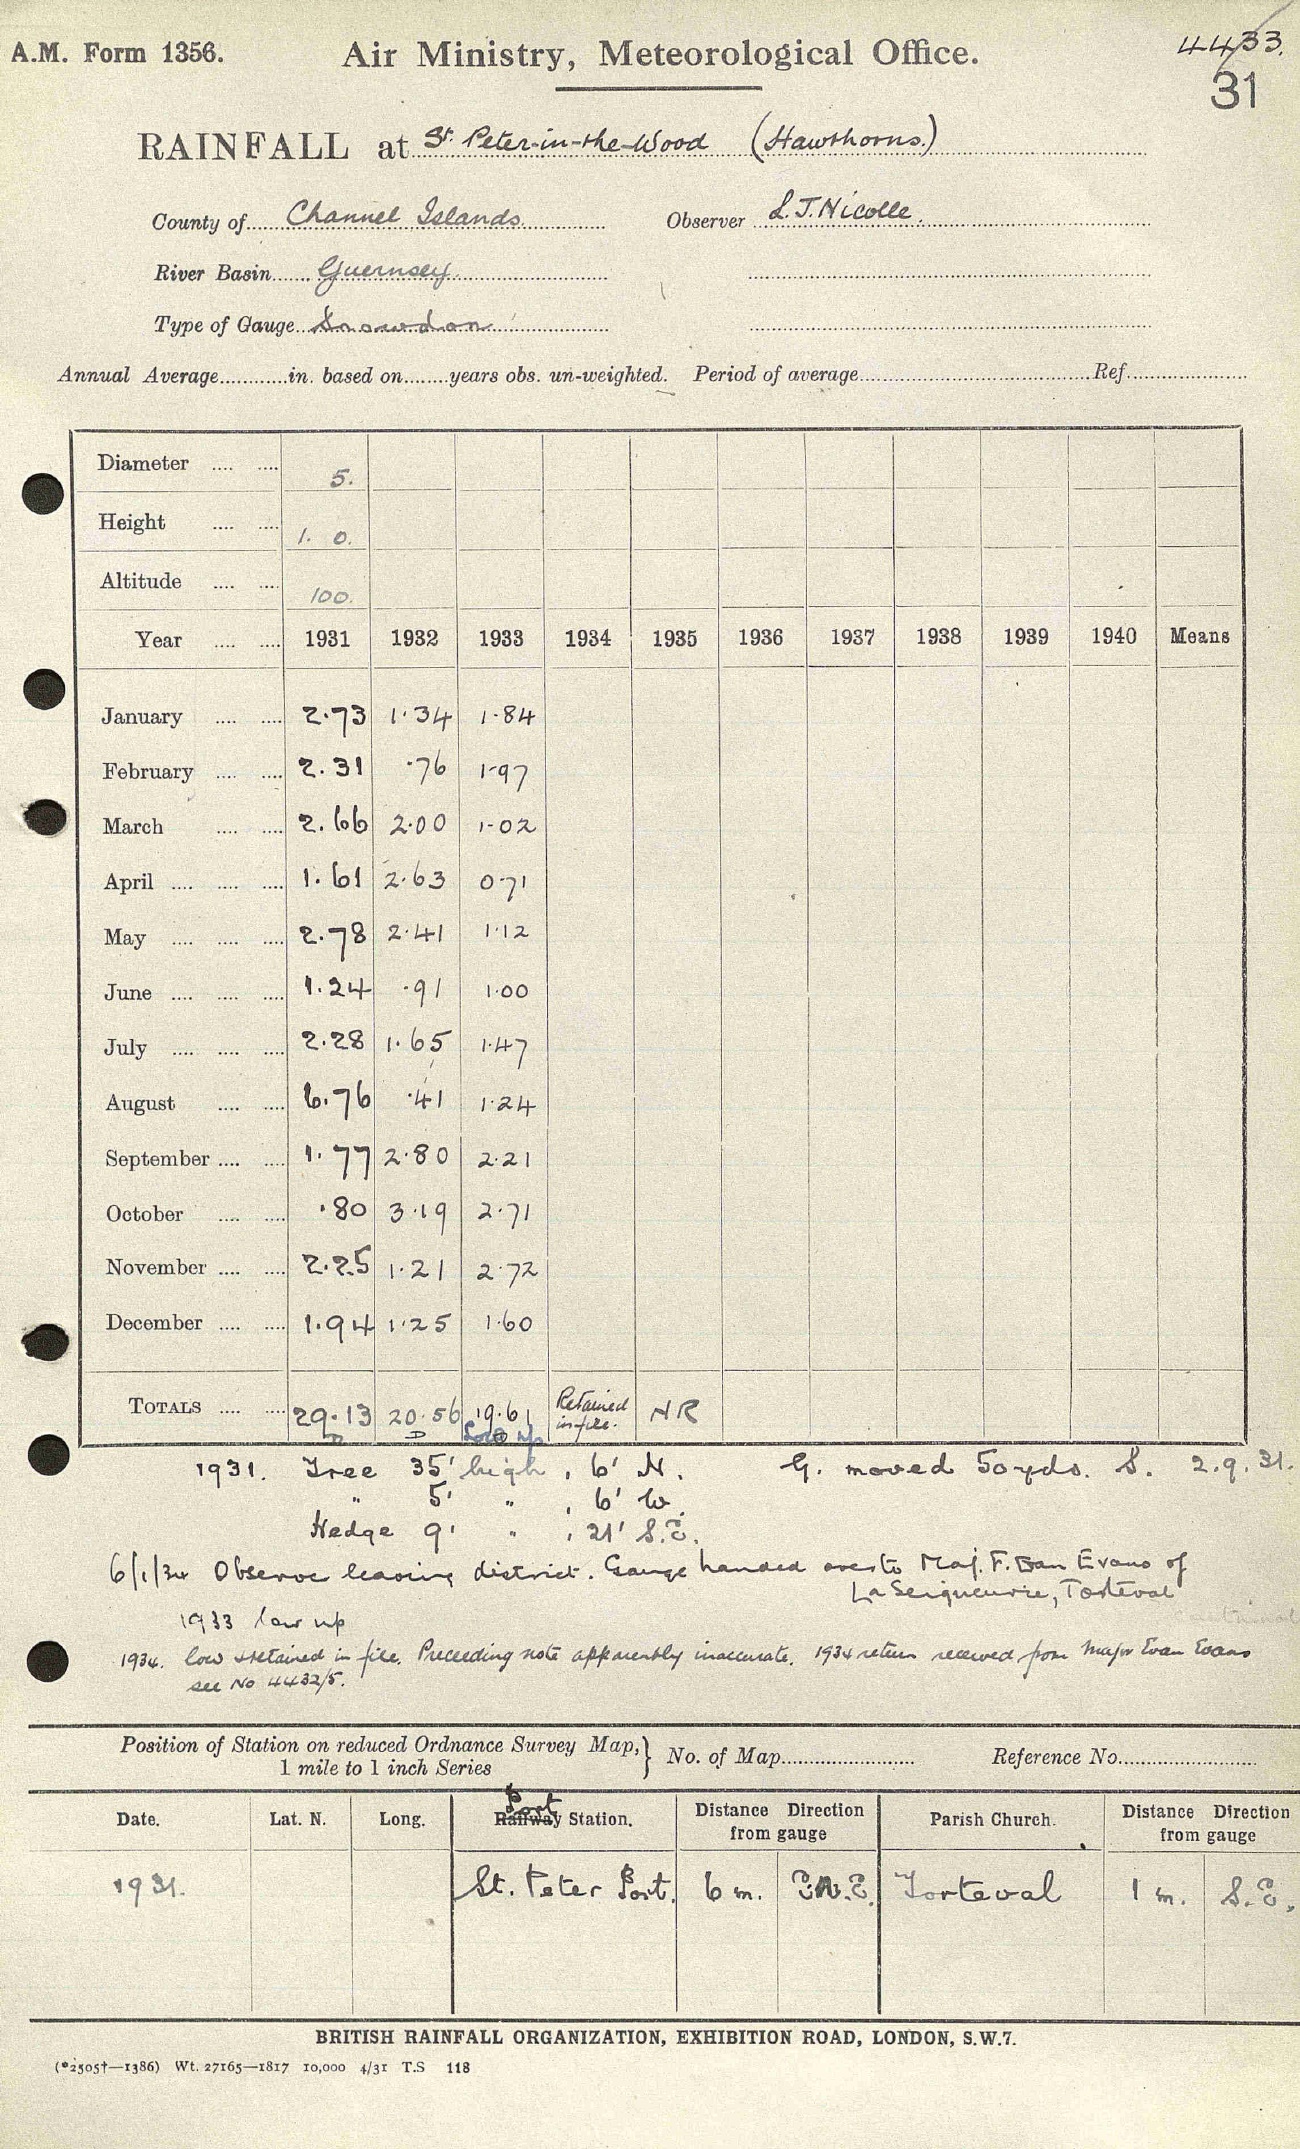 A.M. Form 1356. Air Ministry, Meteorological Office. 4433.
31
RAINFALL at St. Peter-in-the-Wood (Hawthorns.)
County of Channel Islands. Observer L.J. Nicolle.
River Basin Guernsey
Type of Gauge Snowdon
Annual Average in. based on years obs. un-weighted. Period of average Ref.
Diameter 5.
Height 1. 0.
Altitude 100.
Year 1931 1932 1933 1934 1935 1936 1937 1938 1939 1940 Means
January 2.73 1.34 1.84
February 2.31 .76 1.97
March 2.66 2.00 1.02
April 1.61 2.63 0.71
May 2.78 2.41 1.12
June 1.24 .91 1.00
July 2.28 1.65 1.47
August 6.76 .41 1.24
September 1.77 2.80 2.21
October .80 3.19 2.71
November 2.25 1.21 2.72
December 1.94 1.25 1.60
TOTALS 29.13 20.56 19.61 Retained in file. NR
Low up
1931. Tree 35' high, 6' N. G. moved 50 yds. S. 2.9.31.
" 5' " , 6' W.
Hedge 9' " , 21' S.E.
6/1/34 Observer leaving district. Gauge handed over to Maj. F. Evan Evans of
La Seigneurie, Torteval
1933 low up
1934. low & retained in file. Preceeding note apparently inaccurate. 1934 return received from Major Evan Evans
see No 4432/5.
Position of Station on reduced Ordnance Survey Map, 1 mile to 1 inch Series } No. of Map Reference No.
Date. Lat. N. Long. Port Railway Station. Distance Direction from gauge Parish Church. Distance Direction from gauge
1931. St. Peter Port. 6 m. E.N.E. Torteval 1 m. S.E.
BRITISH RAINFALL ORGANIZATION, EXHIBITION ROAD, LONDON, S.W.7.
(*2505†—1386) Wt. 27165—1817 10,000 4/31 T.S 118